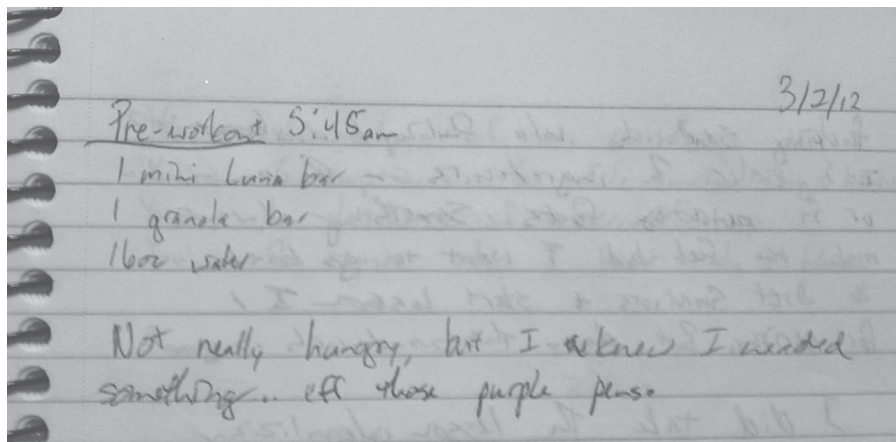 3/2/12
Pre-workout 5:45am
1 mini Luna bar
1 granola bar
16oz water
Not really hungry, but I knew I needed
something.. eff those purple pens.